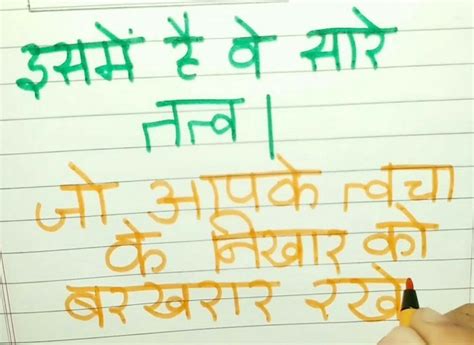 इसमें है वे सारे
तत्व |
जो आपके त्वचा
के निखार को
बरखरार रखे